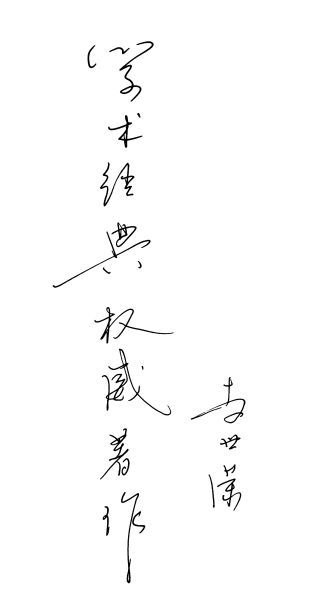 学术经典权威著作
李世蕖